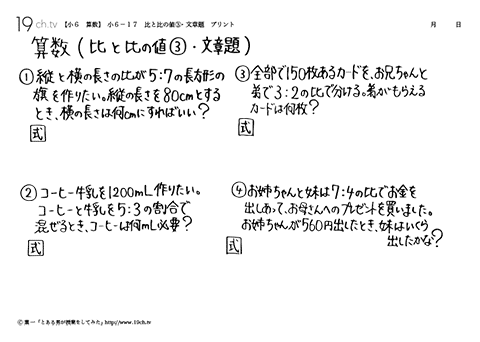 19ch.tv 【小6 算数】 小6-17 比と比の値③・文章題 プリント 月 日
算数(比と比の値③・文章題)
①縦と横の長さの比が5:7の長方形の
旗を作りたい。縦の長さを80cmとする
とき、横の長さは何cmにすればいい?
式
③全部で150枚あるカードを、お兄ちゃんと
弟で3:2の比で分ける。弟がもらえる
カードは何枚?
式
②コーヒー牛乳を1200mL作りたい。
コーヒーと牛乳を5:3の割合で
混ぜるとき、コーヒーは何mL必要?
式
④お姉ちゃんと妹は7:4の比でお金を
出しあって、お母さんへのプレゼントを買いました。
お姉ちゃんが560円出したとき、妹はいくら
出したかな?
式
©葉一「とある男が授業をしてみた」http://www.19ch.tv